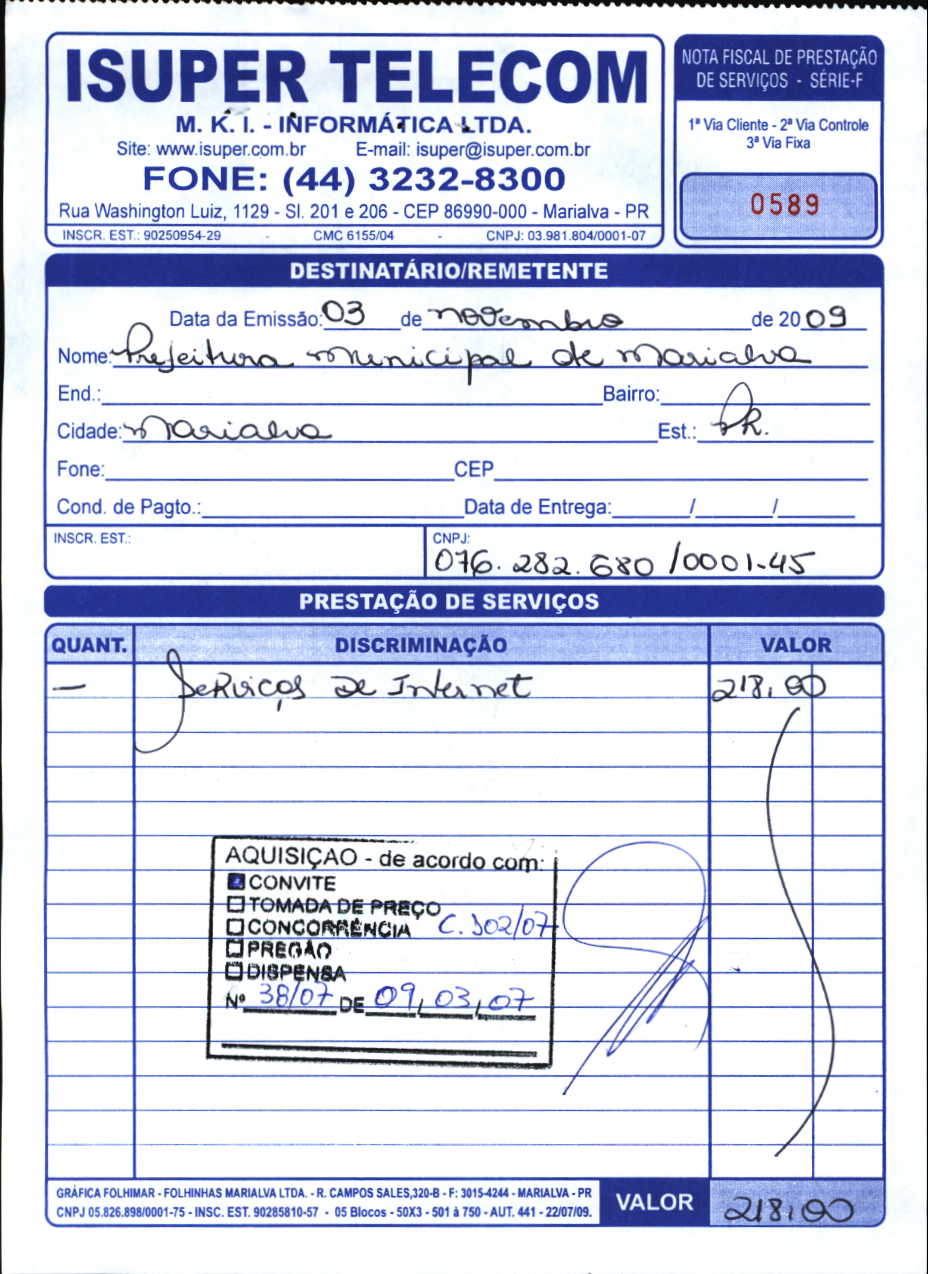 ISUPER TELECOM
M. K. I. - INFORMÁTICA LTDA.
Site: www.isuper.com.br E-mail: isuper@isuper.com.br
FONE: (44) 3232-8300
Rua Washington Luiz, 1129 - Sl. 201 e 206 - CEP 86990-000 - Marialva - PR
INSCR. EST.: 90250954-29 - CMC 6155/04 - CNPJ: 03.981.804/0001-07
NOTA FISCAL DE PRESTAÇÃO
DE SERVIÇOS - SÉRIE-F
1ª Via Cliente - 2ª Via Controle
3ª Via Fixa
0589
DESTINATÁRIO/REMETENTE
Data da Emissão: 03 de novembro de 2009
Nome: Prefeitura municipal de marialva
End.: Bairro:
Cidade: marialva Est.: PR.
Fone: CEP
Cond. de Pagto.: Data de Entrega: / /
INSCR. EST.: CNPJ:
076.282.680/0001-45
PRESTAÇÃO DE SERVIÇOS
QUANT. DISCRIMINAÇÃO VALOR
— Serviços de Internet 218,00
AQUISIÇAO - de acordo com:
CONVITE
TOMADA DE PREÇO
CONCORRÊNCIA C. 302/07
PREGÃO
DISPENSA
Nº 38/07 DE 09, 03, 07
GRÁFICA FOLHIMAR - FOLHINHAS MARIALVA LTDA. - R. CAMPOS SALES,320-B - F: 3015-4244 - MARIALVA - PR
CNPJ 05.826.898/0001-75 - INSC. EST. 90285810-57 - 05 Blocos - 50X3 - 501 à 750 - AUT. 441 - 22/07/09.
VALOR 218,00